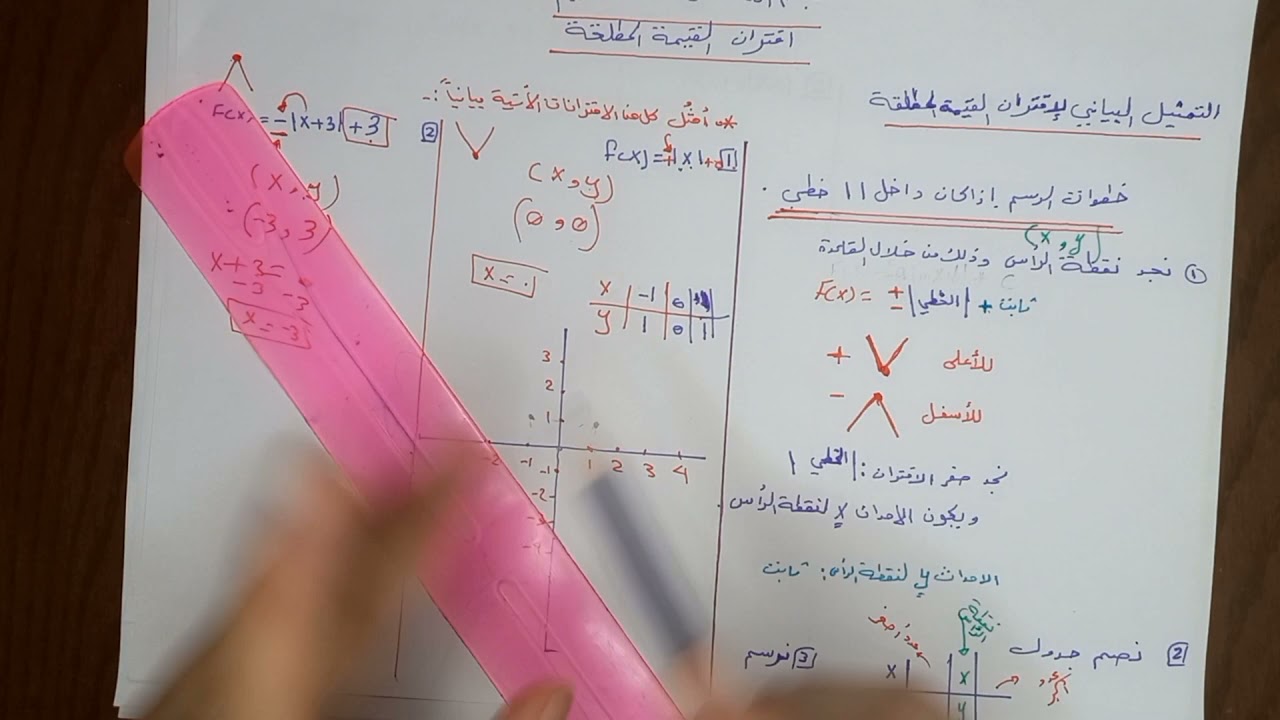 اقتران القيمة المطلقة
التمثيل البياني لإقتران القيمة المطلقة
خطوات الرسم إذا كان داخل | | خطي .
(x , y)
① نجد نقطة الرأس وذلك من خلال القاعدة
F(x) = ± |الخطي| + ثابت
+ للأعلى
- للأسفل
نجد صفر الاقتران : |الخطي|
ويكون الاحداث x لنقطة الرأس
الاحداث y لنقطة الرأس : ثابت
2 نصمم جدول
نقطة الرأس
عدد أصغر
x x
y
3 نرسم
* أمثل كل من الاقترانات الآتية بيانياً :-
1 f(x) = +|x| + 0
(x , y)
(0 , 0)
x = 0
x -1 0 1
y 1 0 1
3
2
1
-2 -1 1 2 3 4
-1
-2
-3
-4
2 F(x) = -|x+3| +3
(x , y)
(-3 , 3)
x + 3 =
-3 -3
x = -3